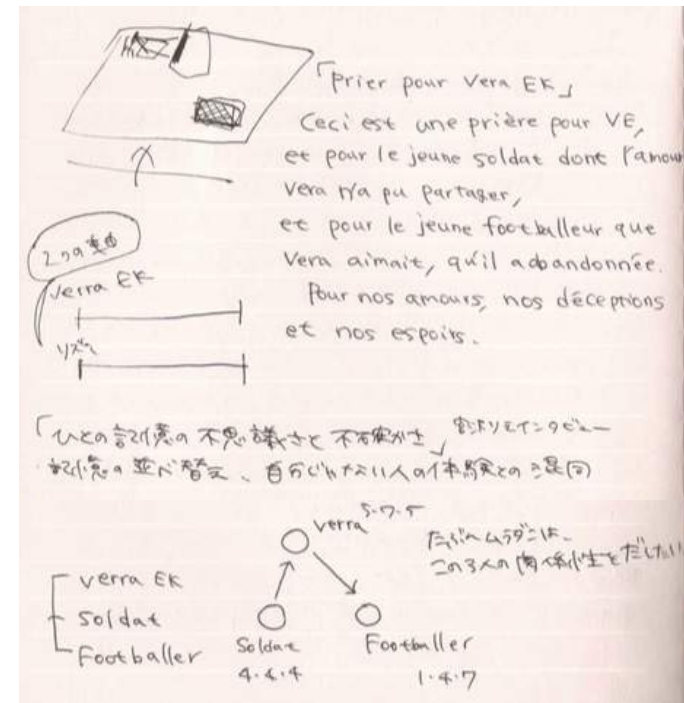 「Prier pour Vera EK」
Ceci est une prière pour VE,
et pour le jeune soldat dont l'amour
vera n'a pu partager,
et pour le jeune footballeur que
Vera aimait, qu'il abandonnée.
Pour nos amours, nos déceptions
et nos espoirs.
2つの
verra EK
リズム
「ひとの記憶の不思議さと不確かさ」 インタビュー
記憶の並べ替え、自分じゃない人の体験との混同
verra 5-7-5
たぶんムラダンは、
この3人の関係性をだしたい
verra EK
soldat
Footballer
Soldat
Footballer
4・4・4
1・4・7